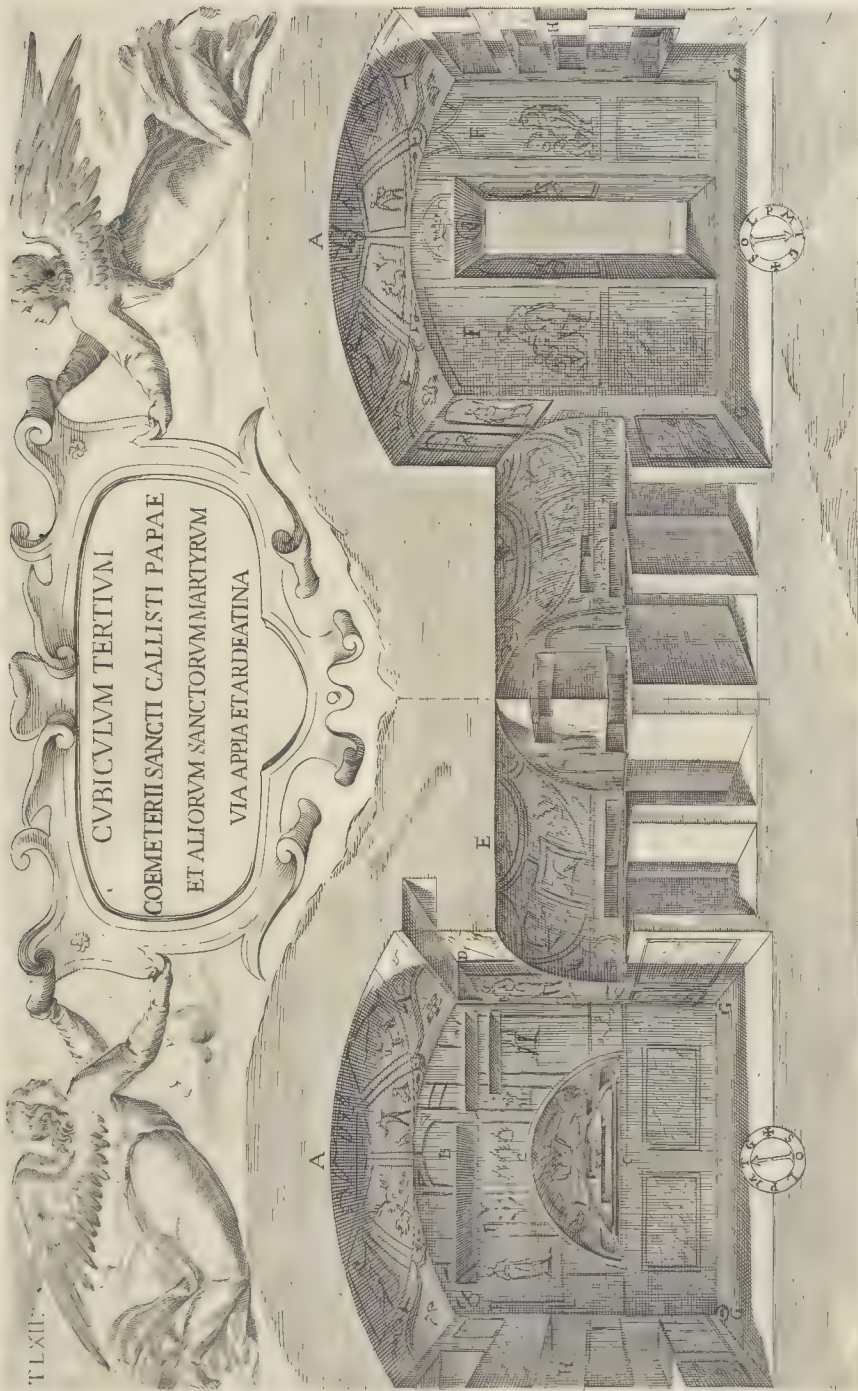 T LXII
CVBICVLVM TERTIVM
COEMETERII SANCTI CALLISTI PAPAE
ET ALIORVM SANCTORVM MARTYRVM
VIA APPIA ET ARDEATINA
A
A
B
C
D
E
F
F
G
G
G
G
H
H
S O L P M I G
S O L P M I G